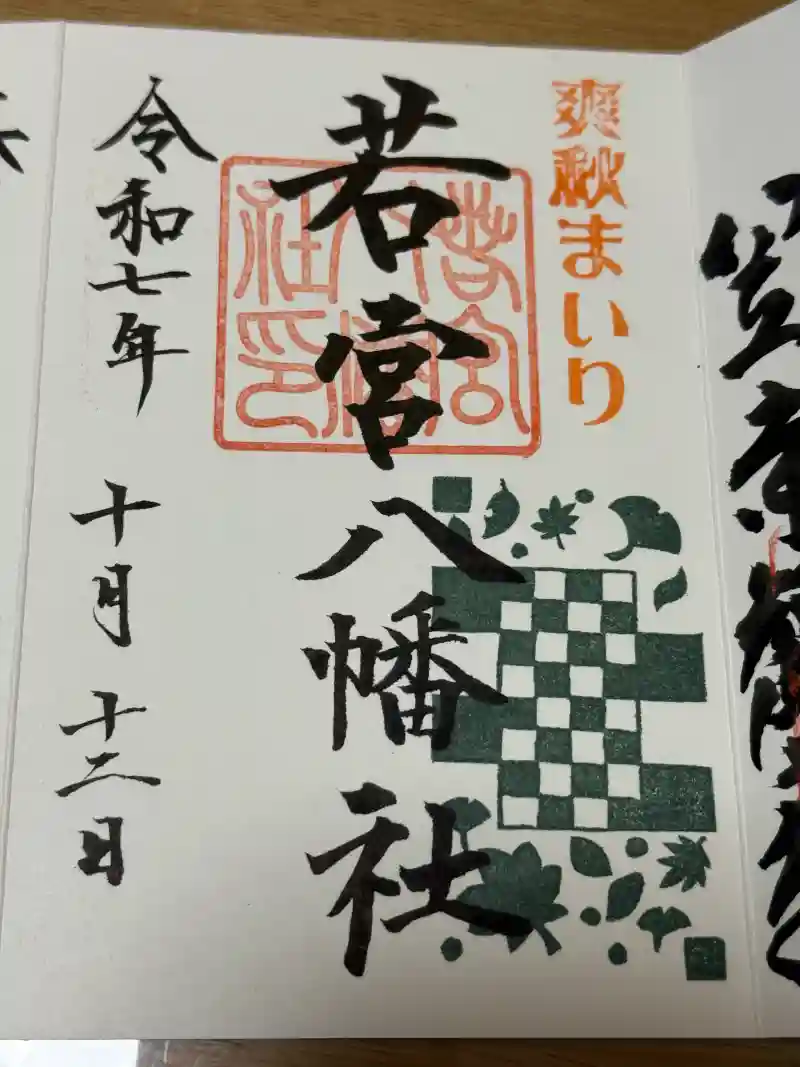 爽秋まいり
若宮八幡社
若宮八幡社印
令和七年 十月 十二日